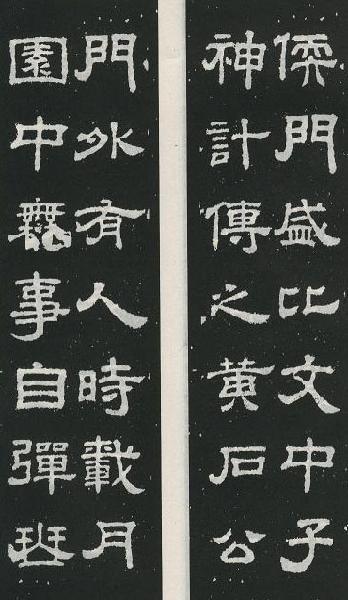 儒門盛比文中子
神計傳之黄石公
門外有人時載月
園中無事自彈